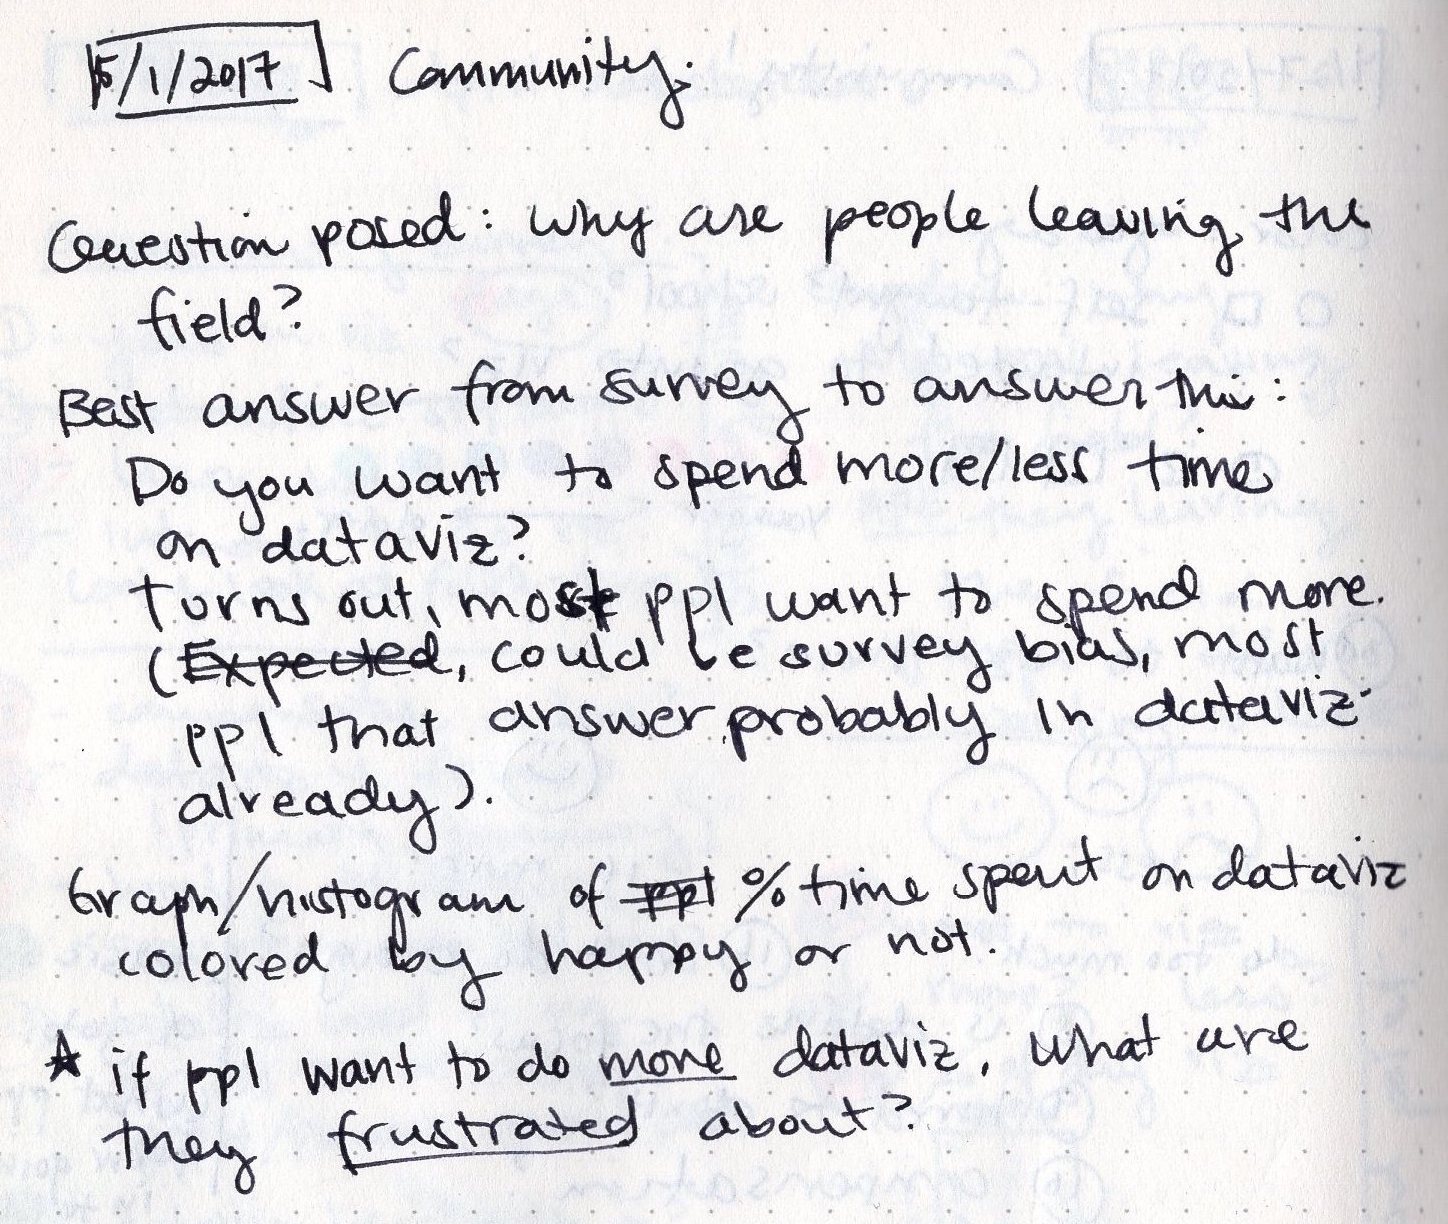 5/1/2017 Community.
Question posed: why are people leaving the
field?
Best answer from survey to answer this:
Do you want to spend more/less time
on dataviz?
turns out, most ppl want to spend more.
(Expected, could be survey bias, most
ppl that answer probably in dataviz
already).
Graph/histogram of ppl % time spent on dataviz
colored by happy or not.
★ if ppl want to do more dataviz, what are
they frustrated about?